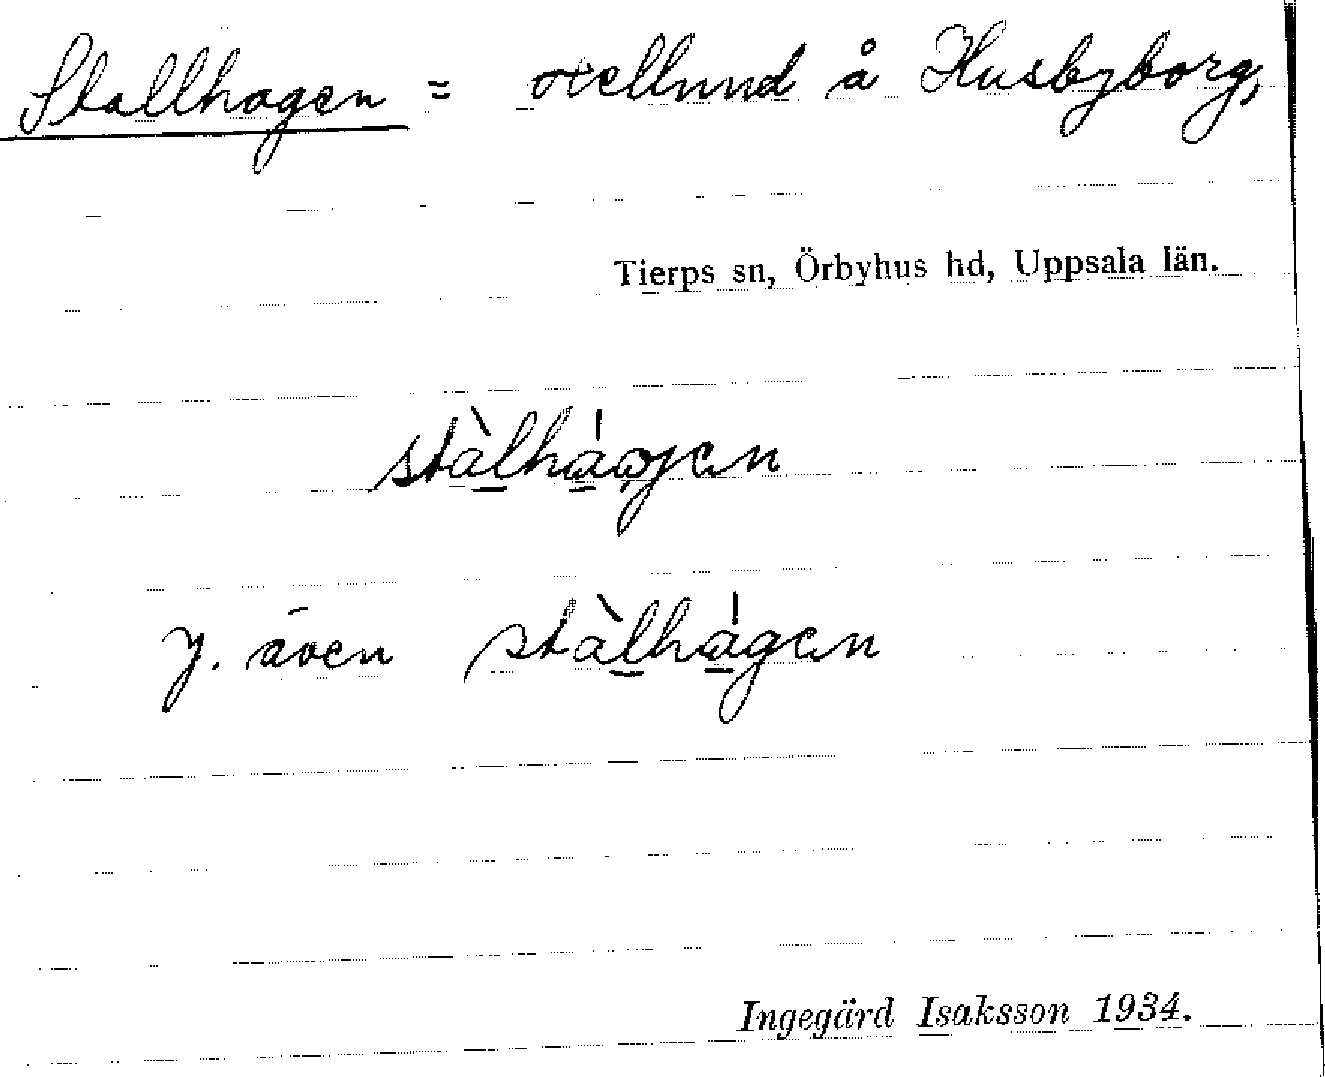 Stallhagen = Hellund å Husbyborg,
Tierps sn, Örbyhus hd, Uppsala län.
stàlhágen
y. även stàlhágen
Ingegärd Isaksson 1934.